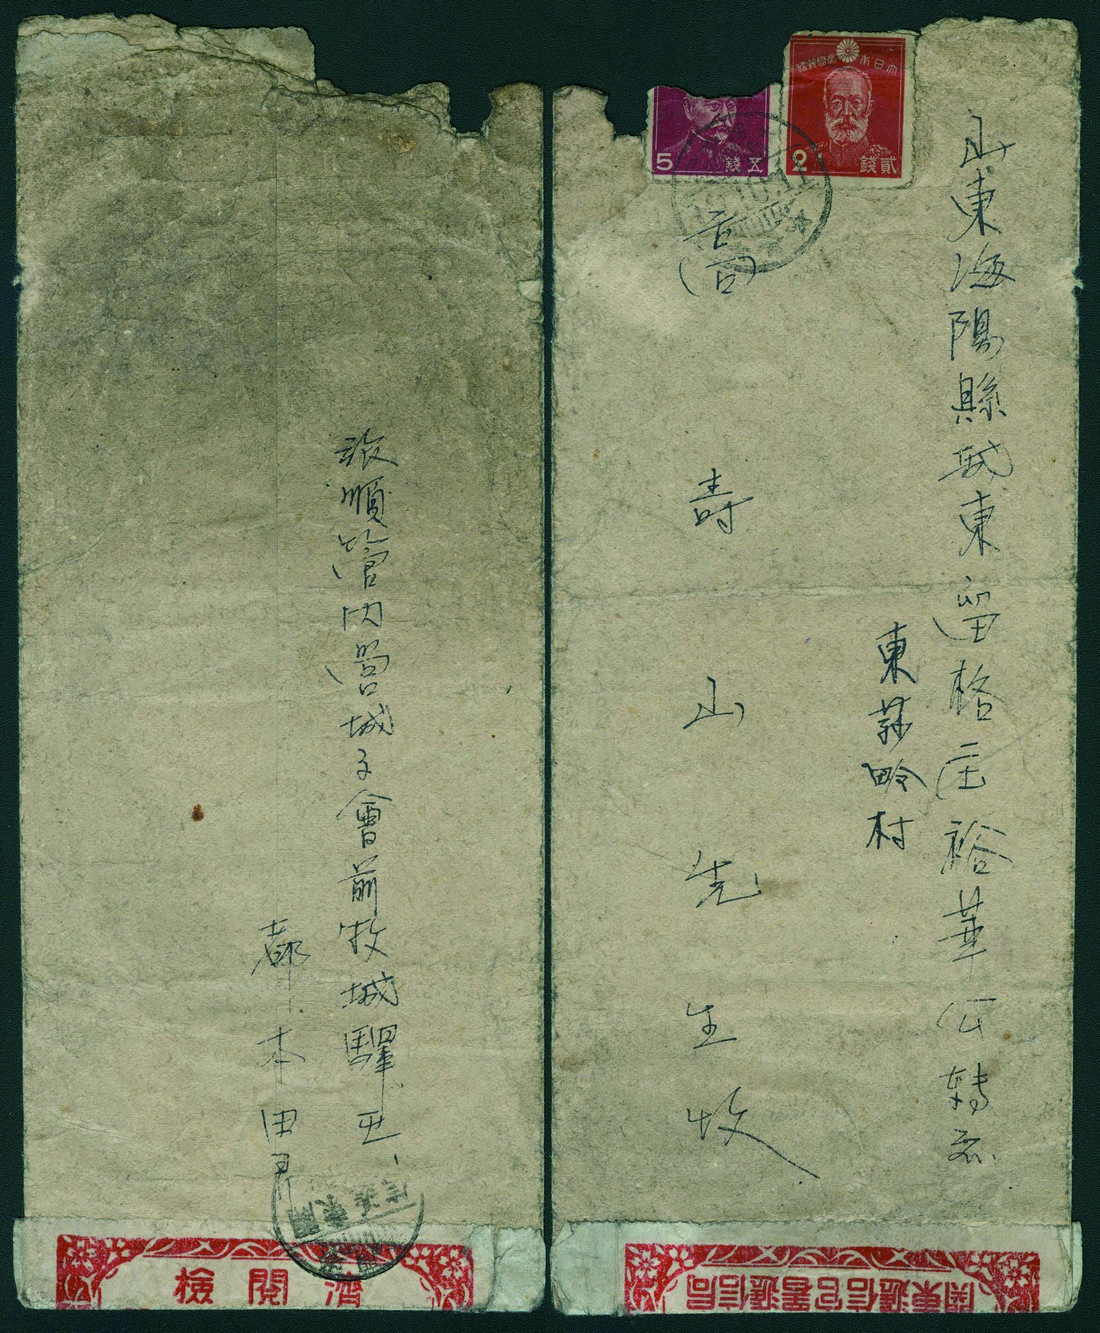 大日本帝國郵便
貳錢
2
五錢
5
山東海陽縣城東留格庄裕華公轉交
東蒜嶺村
高壽山先生收
關東遞信官署遞信局
旅順管內營城子會前牧城驛
都本田
檢閱濟